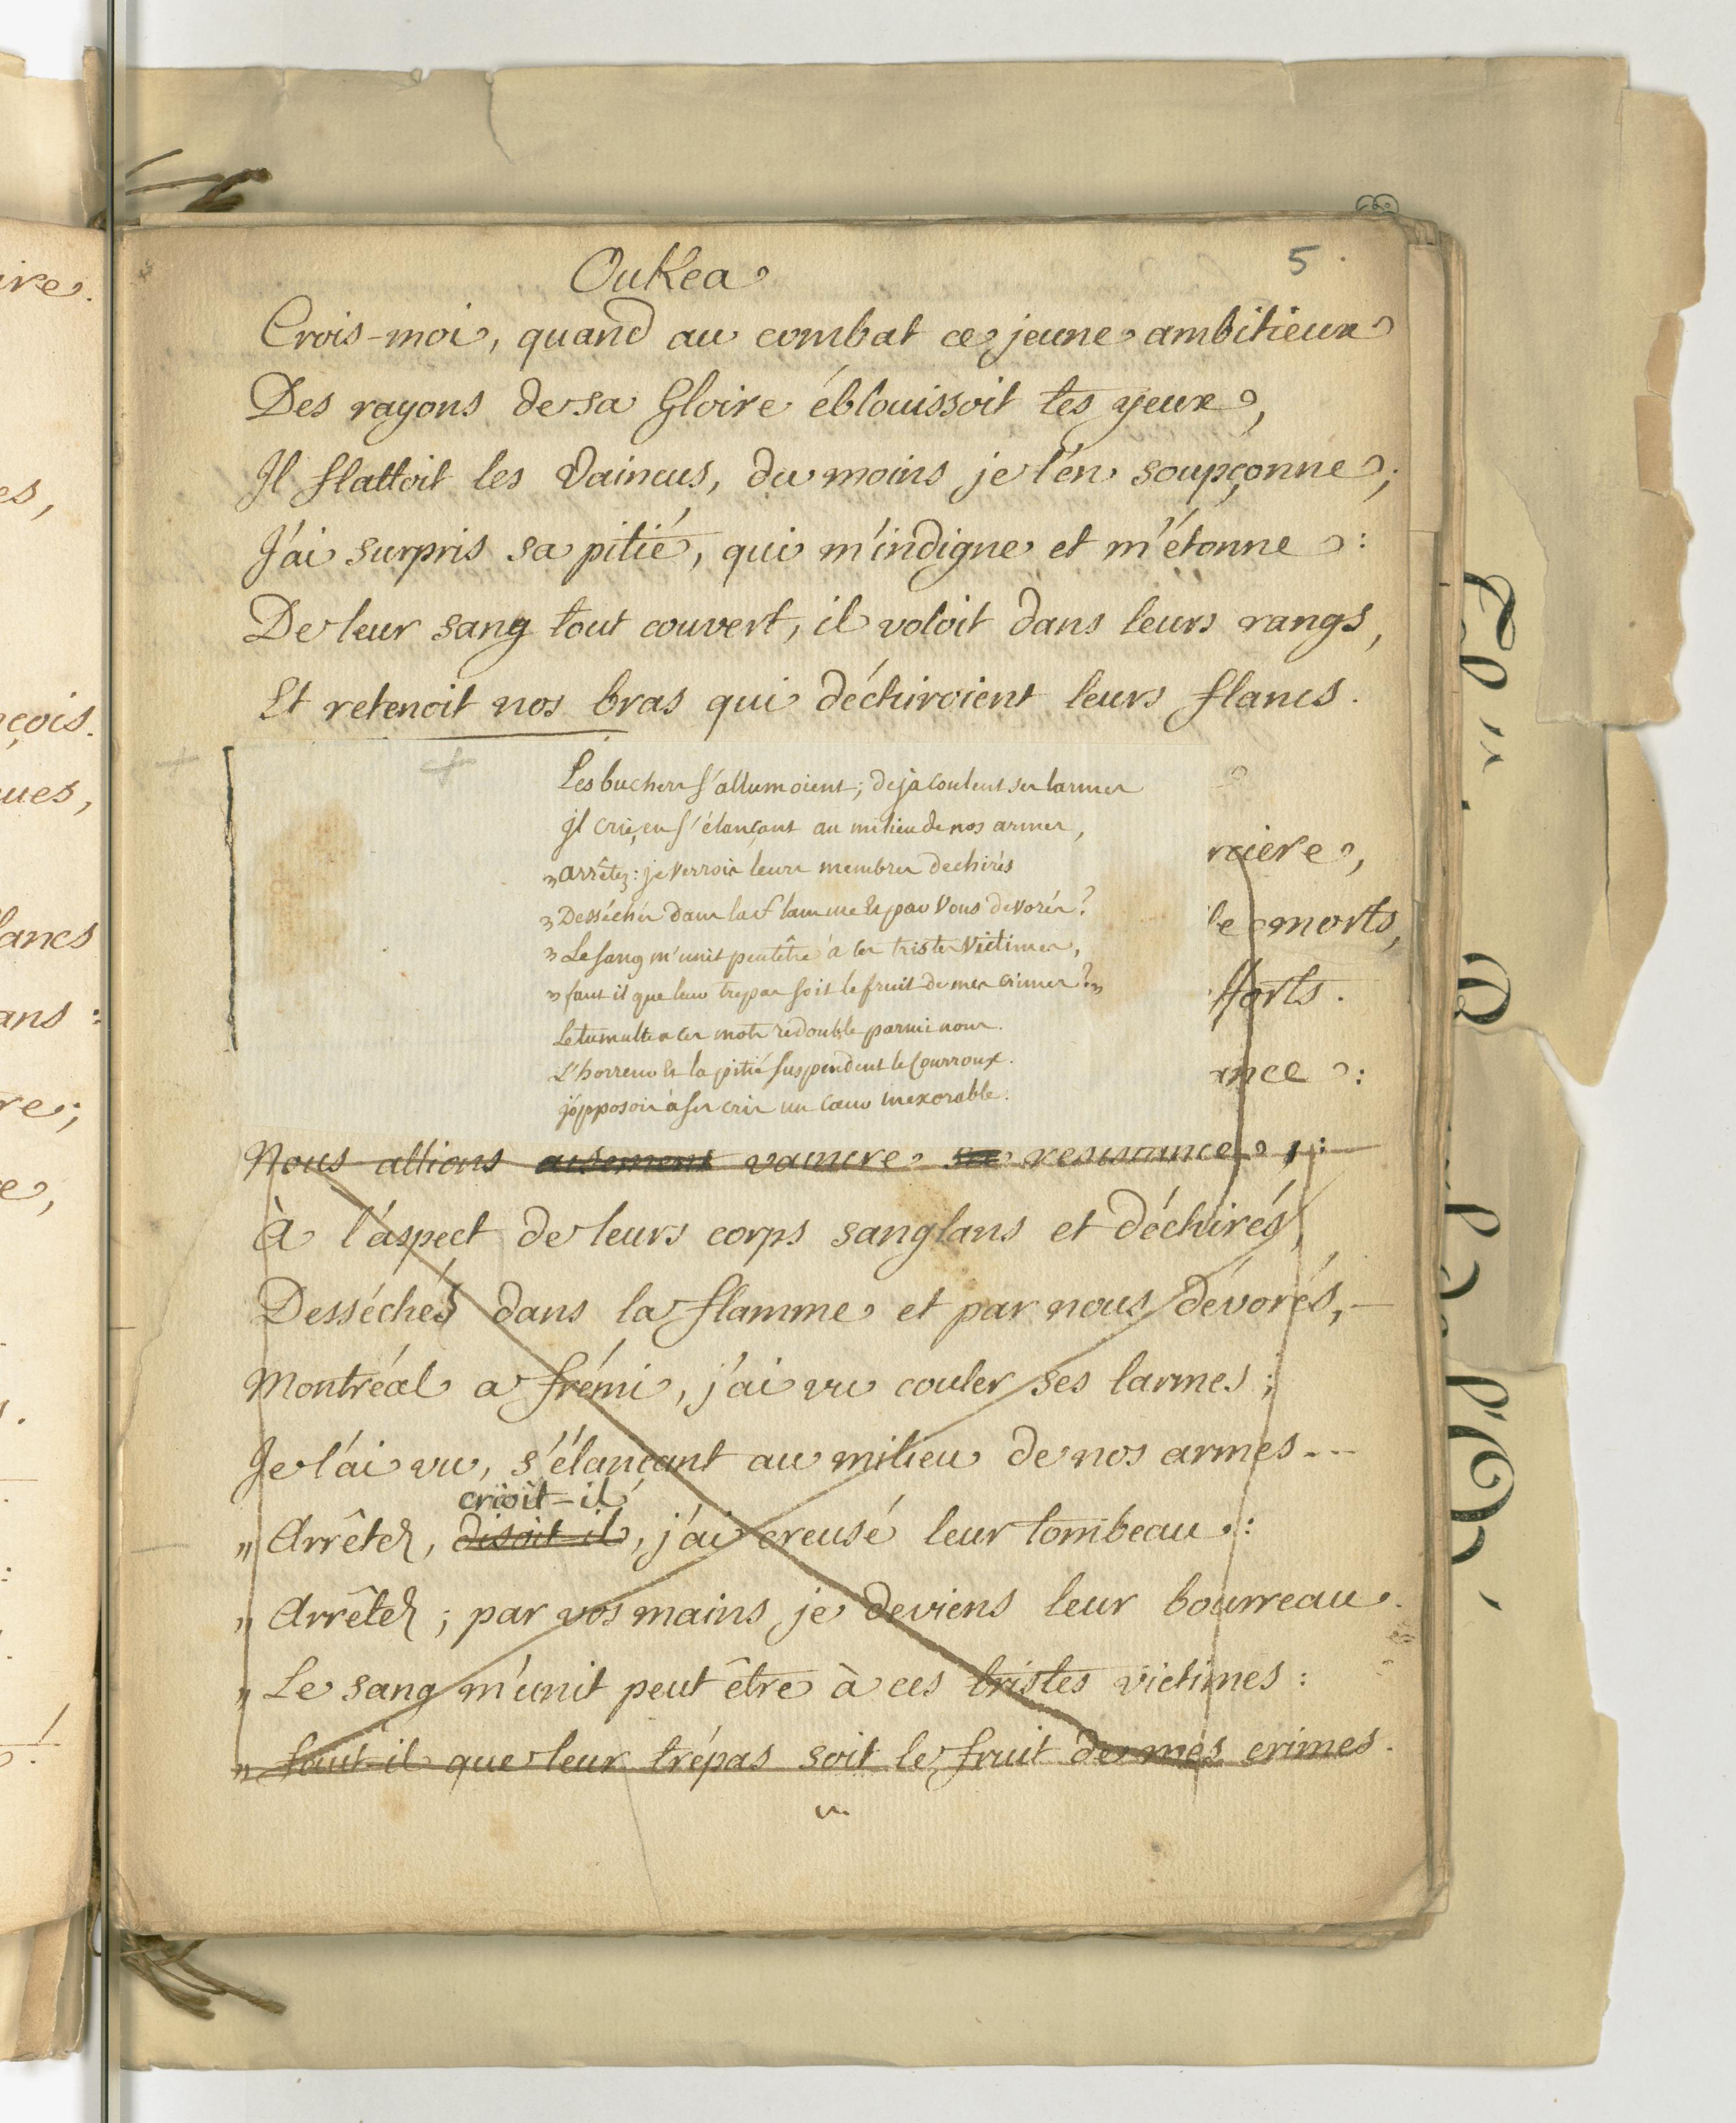 5.
OuKea
Crois-moi, quand au combat ce jeune ambitieux
Des rayons de sa Gloire éblouissoit tes yeux,
Il flattoit les Vaincus, du moins je l'en soupçonne;
J'ai surpris sa pitié, qui m'indigne et m'étonne :
De leur sang tout couvert, il voloit dans leurs rangs,
Et retenoit nos bras qui déchiroient leurs flancs.
Les buchers s'allumoient; deja coulent ses larmes
Il crie, en s'élançant au milieu de nos armes,
" arrêtez: je verrois leurs membres dechirés
" Desséchés dans la flamme et par vous devorés?
" Le sang m'unit peutêtre à ces tristes victimes,
" faut il que leur trepas soit le fruit de mes crimes? "
Le tumulte a ces mots redouble parmi nous.
L'horreur et la pitié suspendent le courroux.
j'opposois à ses cris un coeur inexorable.
rciere,
le morts,
fforts.
ance :
Nous allions aisement vaincre sa resistance, :
À l'aspect de leurs corps sanglans et déchirés,
Desséchés dans la flamme et par nous dévorés,
Montréal a frémi, j'ai vu couler ses larmes;
Je l'ai vu, s'élançant au milieu de nos armes---
crioit-il
" Arrêtez, disoit-il, j'ai creusé leur tombeau :
" Arrêtez; par vos mains je deviens leur bourreau.
" Le sang m'unit peut être à ces tristes victimes :
" faut-il que leur trépas soit le fruit de mes crimes.